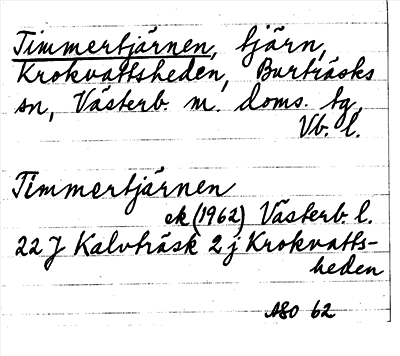 Timmertjärnen, tjärn,
Krokvattsheden, Burträsks
sn, Västerb. m. doms. tg,
Vb. l.
Timmertjärnen
ek (1962) Västerb. l.
22 J Kalvträsk 2 j Krokvatts-
heden
ASO 62